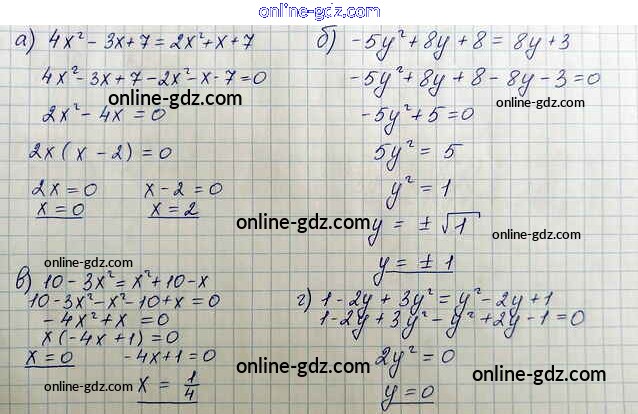 online-gdz.com
а) 4x² - 3x + 7 = 2x² + x + 7
4x² - 3x + 7 - 2x² - x - 7 = 0
online-gdz.com
2x² - 4x = 0
2x(x - 2) = 0
2x = 0 x - 2 = 0
x = 0 x = 2
б) -5y² + 8y + 8 = 8y + 3
-5y² + 8y + 8 - 8y - 3 = 0
online-gdz.com
-5y² + 5 = 0
5y² = 5
y² = 1
online-gdz.com
y = ± √1
online-gdz.com
y = ± 1
online-gdz.com
в) 10 - 3x² = x² + 10 - x
10 - 3x² - x² - 10 + x = 0
-4x² + x = 0
x(-4x + 1) = 0
x = 0 -4x + 1 = 0
online-gdz.com
x = 1/4
г) 1 - 2y + 3y² = y² - 2y + 1
1 - 2y + 3y² - y² + 2y - 1 = 0
online-gdz.com
2y² = 0
online-gdz.com
y = 0